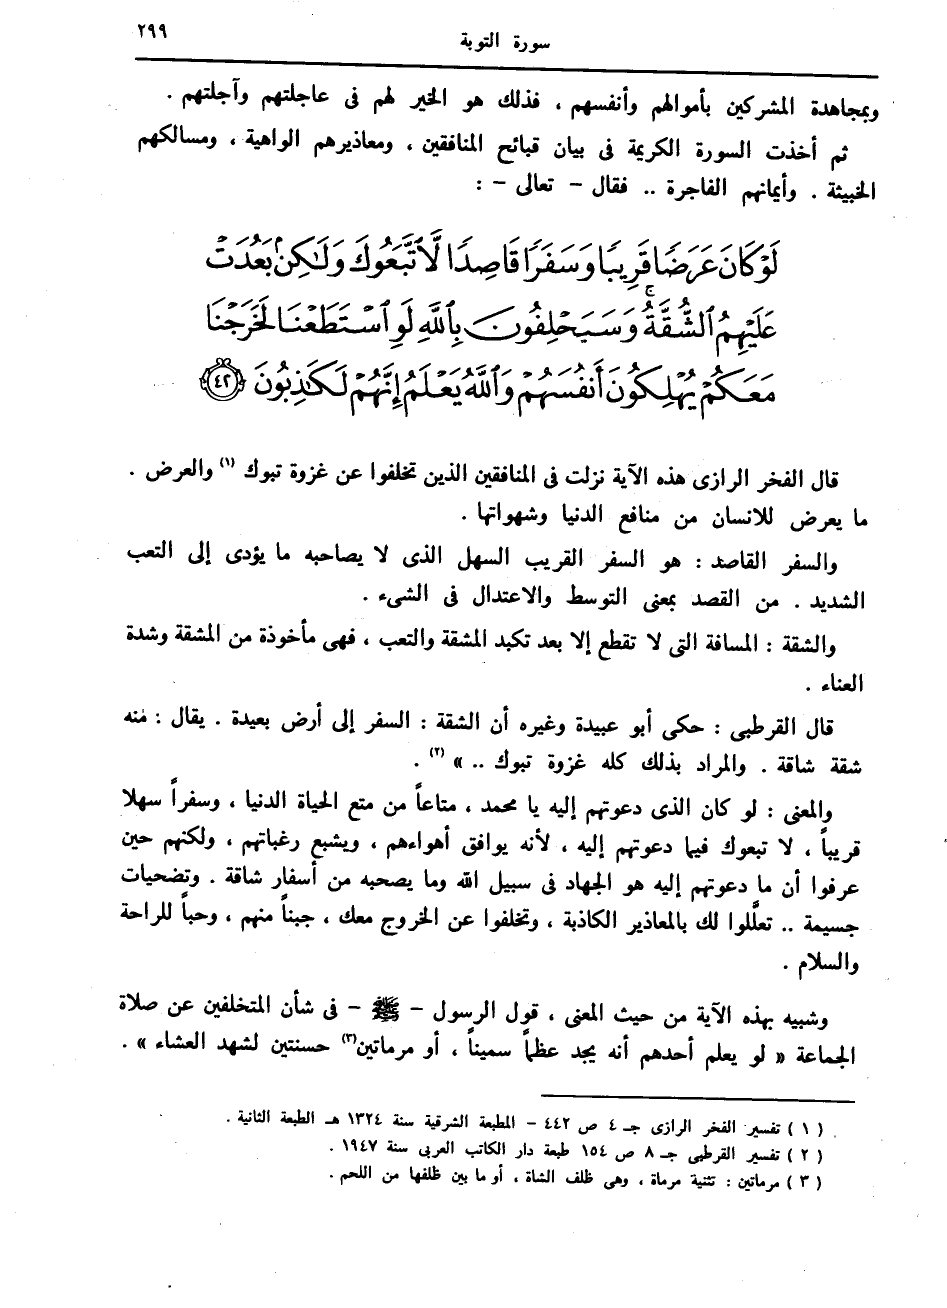 سورة التوبة
٢٩٩
وبمجاهدة المشركين بأموالهم وأنفسهم ، فذلك هو الخير لهم فى عاجلتهم وآجلتهم .
ثم أخذت السورة الكريمة فى بيان قبائح المنافقين ، ومعاذيرهم الواهية ، ومسالكهم
الخبيثة . وأيمانهم الفاجرة .. فقال – تعالى – :
لَوْ كَانَ عَرَضًا قَرِيبًا وَسَفَرًا قَاصِدًا لَّاتَّبَعُوكَ وَلَٰكِنۢ بَعُدَتْ
عَلَيْهِمُ ٱلشُّقَّةُ ۚ وَسَيَحْلِفُونَ بِٱللَّهِ لَوِ ٱسْتَطَعْنَا لَخَرَجْنَا
مَعَكُمْ يُهْلِكُونَ أَنفُسَهُمْ وَٱللَّهُ يَعْلَمُ إِنَّهُمْ لَكَٰذِبُونَ ﴿٤٢﴾
قال الفخر الرازى هذه الآية نزلت فى المنافقين الذين تخلفوا عن غزوة تبوك (١) والعرض .
ما يعرض للانسان من منافع الدنيا وشهواتها .
والسفر القاصد : هو السفر القريب السهل الذى لا يصاحبه ما يؤدى إلى التعب
الشديد . من القصد بمعنى التوسط والاعتدال فى الشىء .
والشقة : المسافة التى لا تقطع إلا بعد تكبد المشقة والتعب ، فهى مأخوذة من المشقة وشدة
العناء .
قال القرطبى : حكى أبو عبيدة وغيره أن الشقة : السفر إلى أرض بعيدة . يقال : منه
شقة شاقة . والمراد بذلك كله غزوة تبوك .. » (٢) .
والمعنى : لو كان الذى دعوتهم إليه يا محمد ، متاعاً من متع الحياة الدنيا ، وسفراً سهلا
قريباً ، لا تبعوك فيما دعوتهم إليه ، لأنه يوافق أهواءهم ، ويشبع رغباتهم ، ولكنهم حين
عرفوا أن ما دعوتهم إليه هو الجهاد فى سبيل الله وما يصحبه من أسفار شاقة . وتضحيات
جسيمة .. تعلَّلوا لك بالمعاذير الكاذبة ، وتخلفوا عن الخروج معك ، جبناً منهم ، وحباً للراحة
والسلام .
وشبيه بهذه الآية من حيث المعنى ، قول الرسول – ﷺ – فى شأن المتخلفين عن صلاة
الجماعة « لو يعلم أحدهم أنه يجد عظماً سميناً ، أو مرماتين(٣) حسنتين لشهد العشاء » .
( ١ ) تفسير الفخر الرازى جـ ٤ ص ٤٤٢ – المطبعة الشرقية سنة ١٣٢٤ هـ الطبعة الثانية .
( ٢ ) تفسير القرطبى جـ ٨ ص ١٥٤ طبعة دار الكاتب العربى سنة ١٩٤٧ .
( ٣ ) مرماتين : تثنية مرماة ، وهى ظلف الشاة ، أو ما بين ظلفها من اللحم .